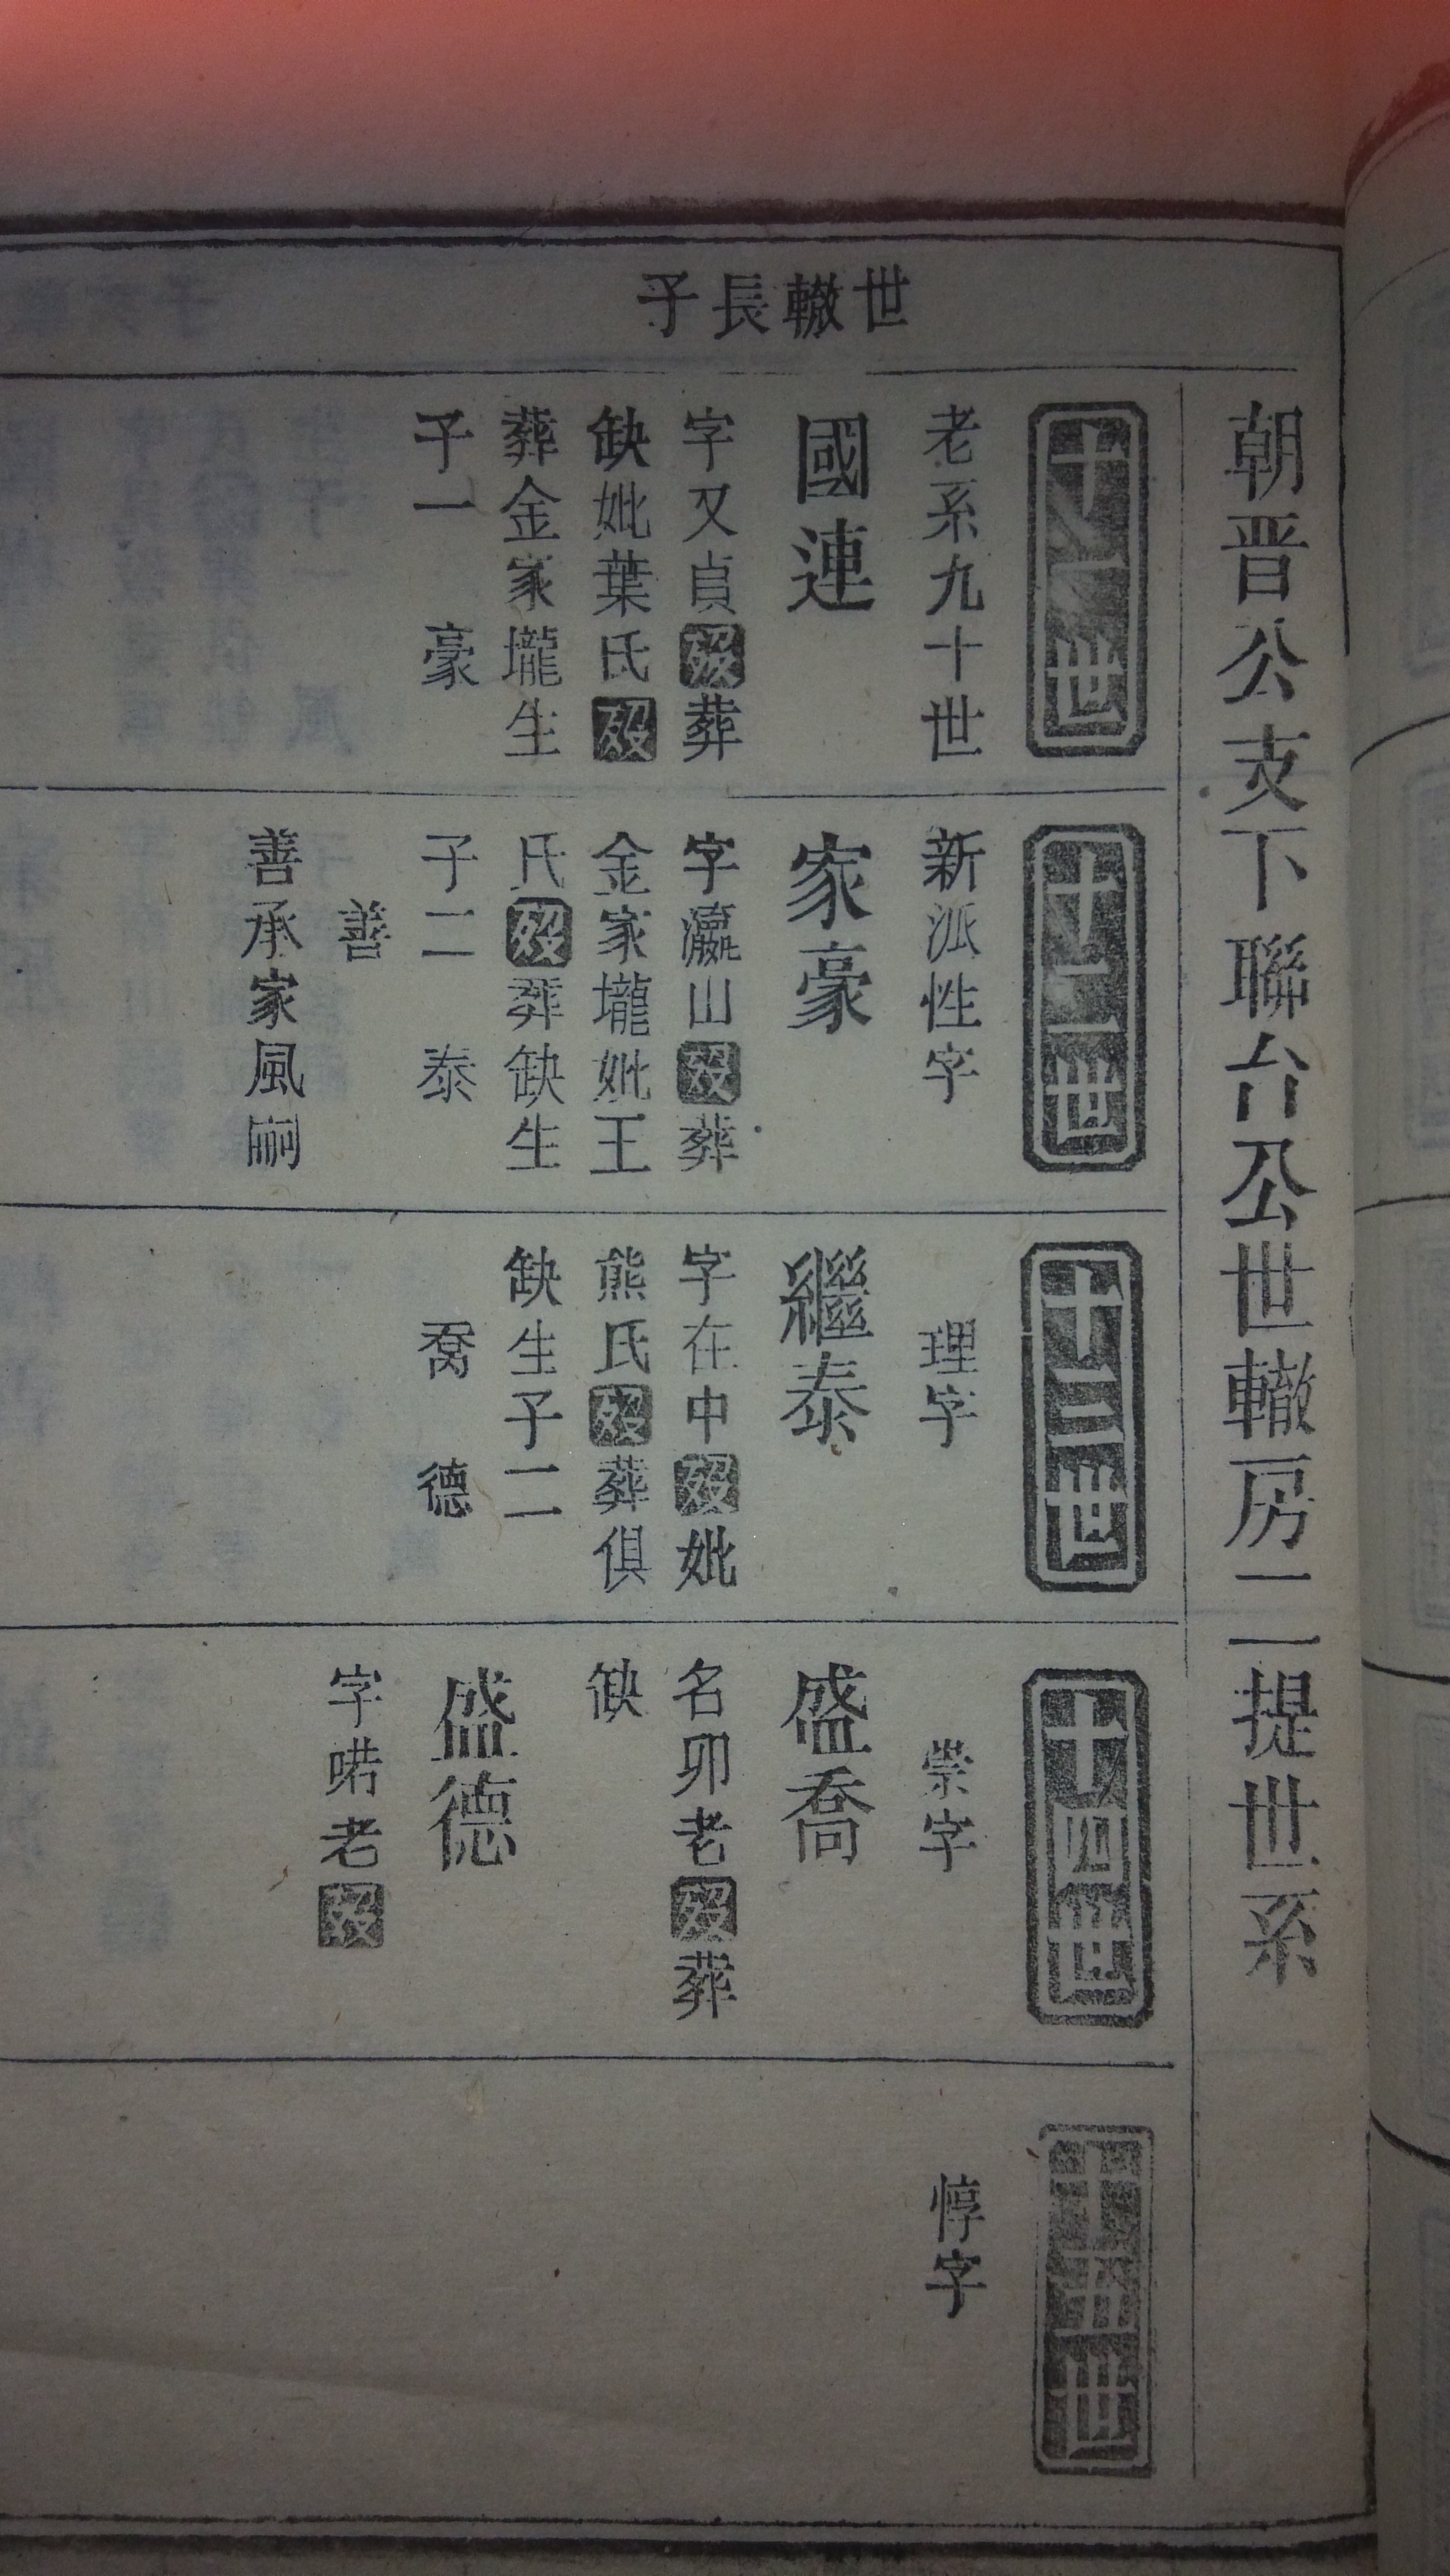 朝晋公支下聯台公世轍房二提世系
世轍長子
十一世
老系九十世
國連
字又貞歿葬
缺妣葉氏歿
葬金家壠生
子一 豪
十二世
新派性字
家豪
字瀛山歿葬
金家壠妣王
氏歿葬缺生
子二 泰
善
善承家風嗣
十三世
理字
繼泰
字在中歿妣
熊氏歿葬俱
缺生子二
喬 德
十四世
崇字
盛喬
名卯老歿葬
缺
盛德
字喏老歿
十五世
惇字